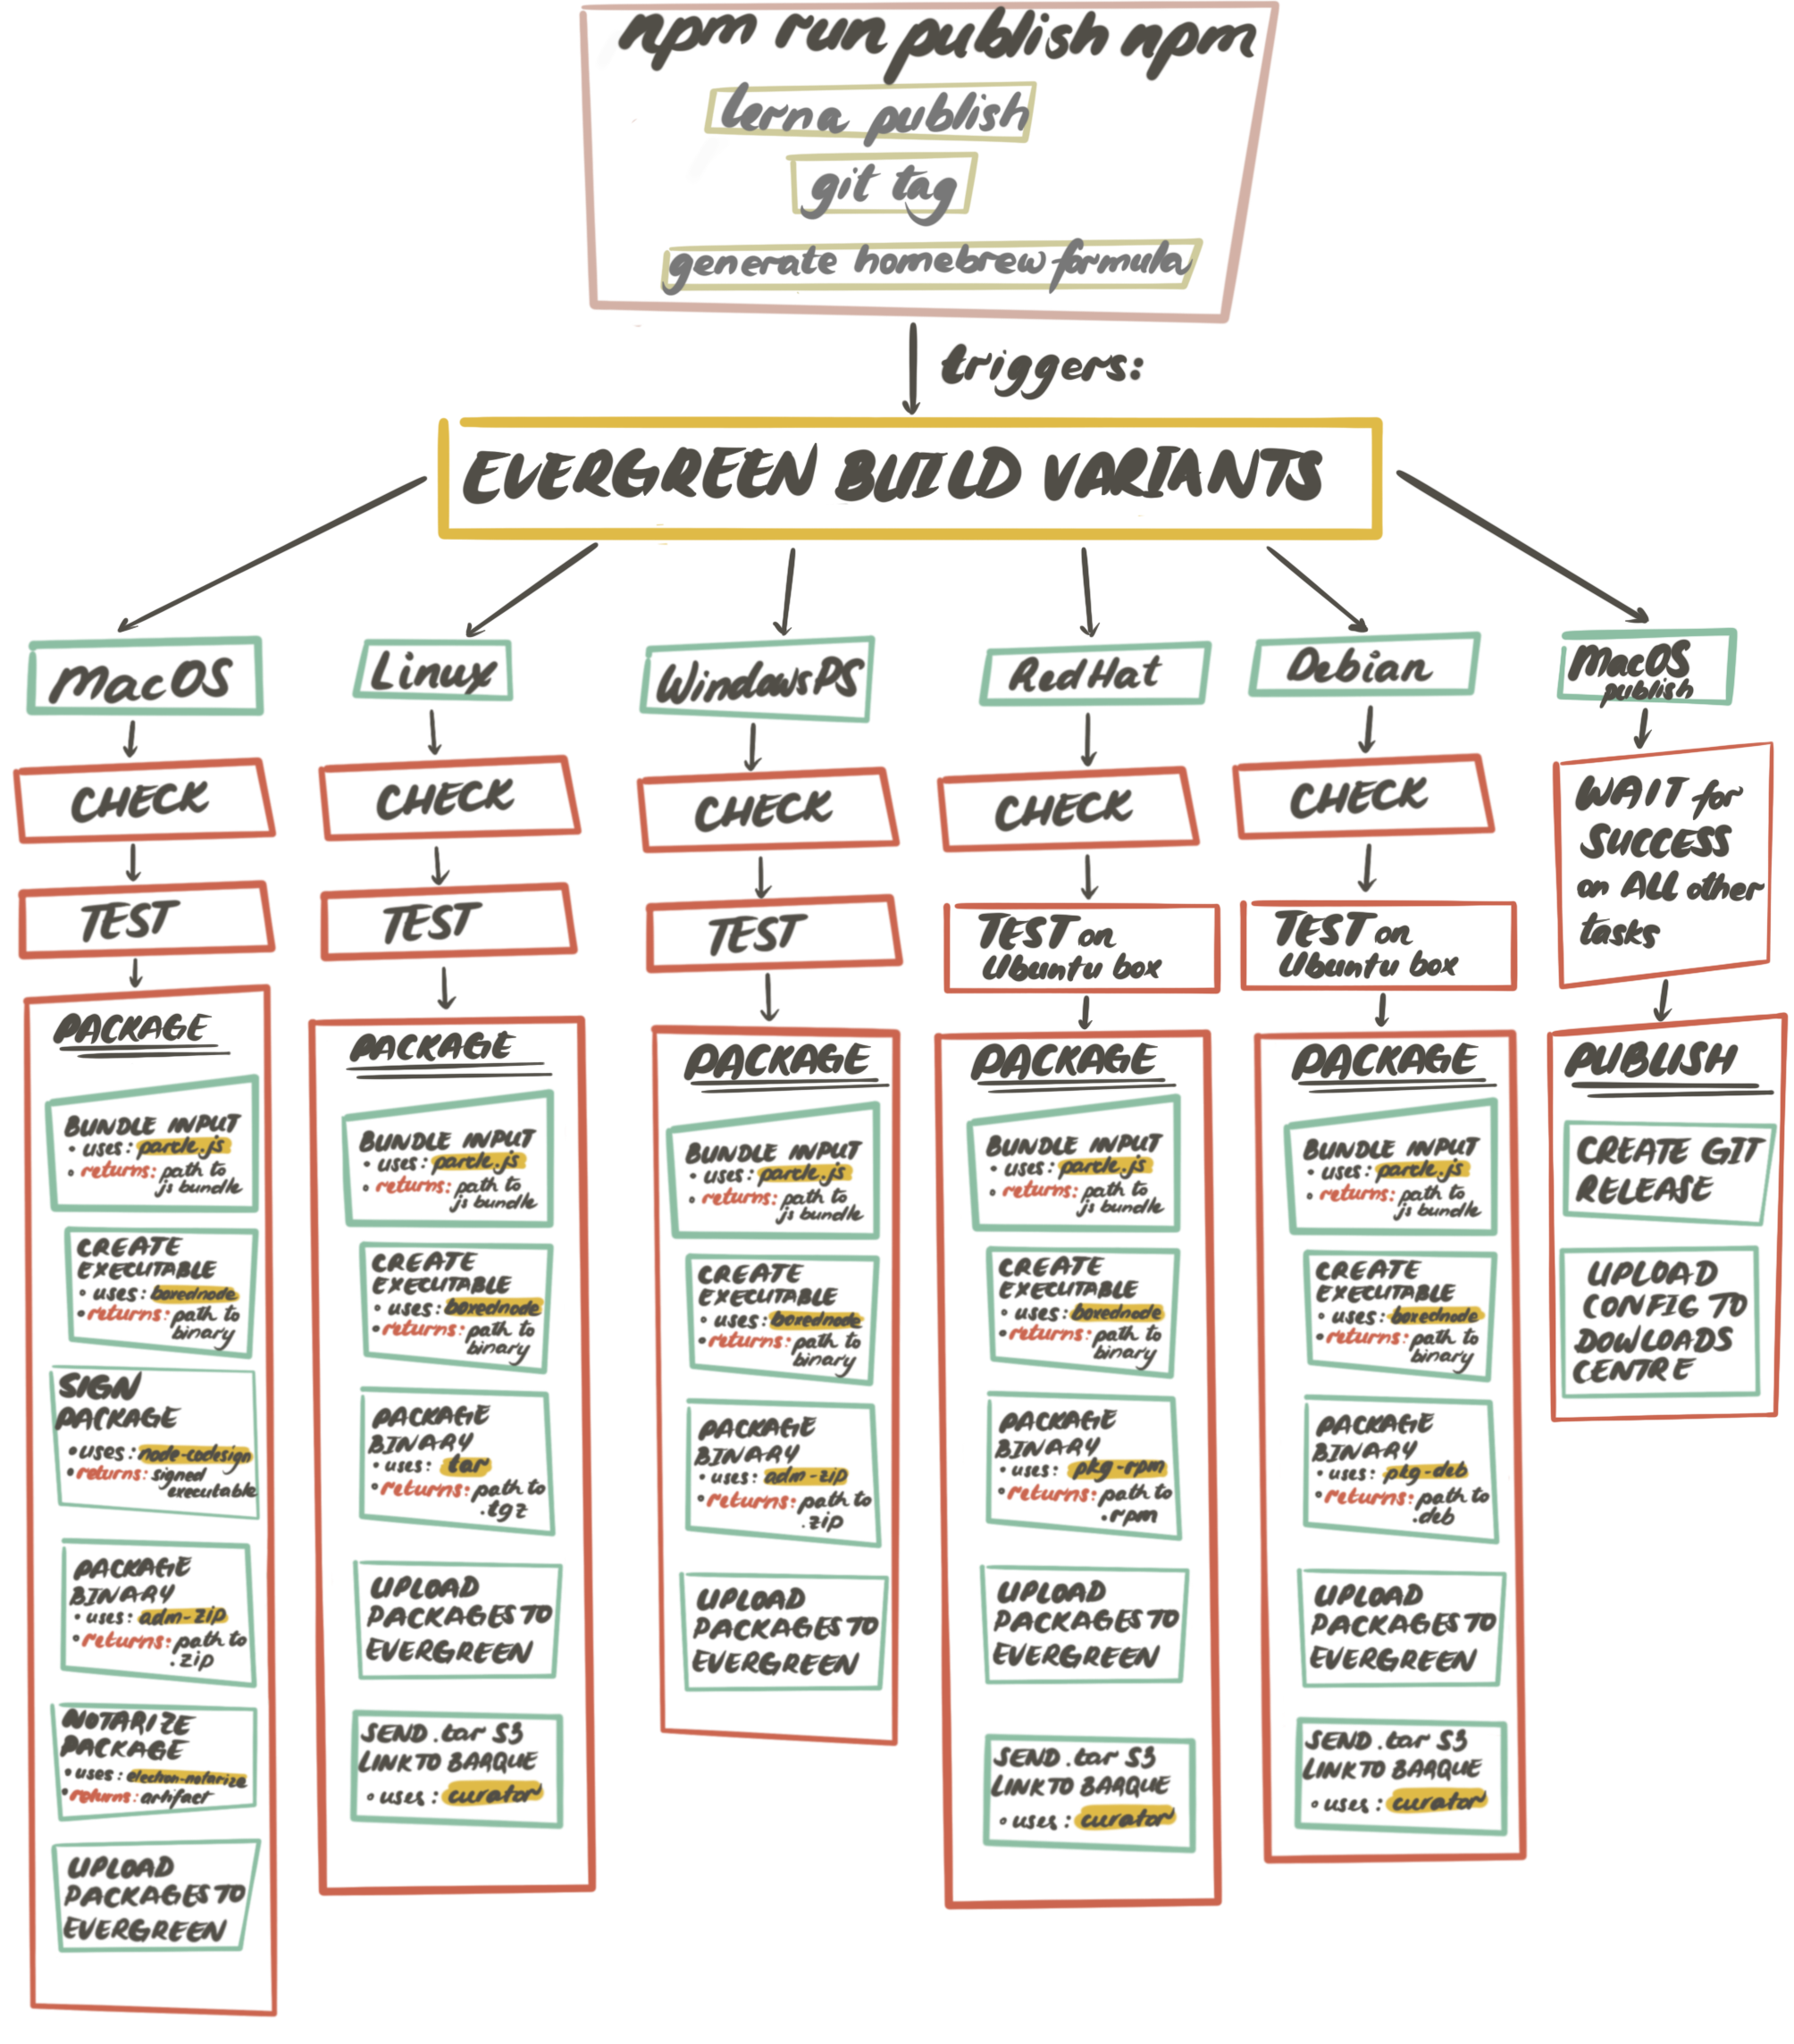 npm run publish npm
lerna publish
git tag
generate homebrew formula
triggers:
EVERGREEN BUILD VARIANTS
MacOS
CHECK
TEST
PACKAGE
BUNDLE INPUT
• uses: parcle.js
◦ returns: path to
js bundle
CREATE
EXECUTABLE
◦ uses: boxednode
• returns: path to
binary
SIGN
PACKAGE
• uses: node-codesign
• returns: signed
executable
PACKAGE
BINARY
• uses: adm-zip
• returns: path to
.zip
NOTARIZE
PACKAGE
• uses: electron-notarize
• returns: artifact
UPLOAD
PACKAGES TO
EVERGREEN
Linux
CHECK
TEST
PACKAGE
BUNDLE INPUT
• uses: parcle.js
◦ returns: path to
js bundle
CREATE
EXECUTABLE
◦ uses: boxednode
• returns: path to
binary
PACKAGE
BINARY
• uses: tar
• returns: path to
.tgz
UPLOAD
PACKAGES TO
EVERGREEN
SEND .tar S3
LINK TO BARQUE
• uses: curator
WindowsPS
CHECK
TEST
PACKAGE
BUNDLE INPUT
• uses: parcle.js
◦ returns: path to
js bundle
CREATE
EXECUTABLE
◦ uses: boxednode
• returns: path to
binary
PACKAGE
BINARY
• uses: adm-zip
• returns: path to
.zip
UPLOAD
PACKAGES TO
EVERGREEN
RedHat
CHECK
TEST on
Ubuntu box
PACKAGE
BUNDLE INPUT
◦ uses: parcle.js
◦ returns: path to
js bundle
CREATE
EXECUTABLE
• uses: boxednode
• returns: path to
binary
PACKAGE
BINARY
• uses: pkg-rpm
• returns: path to
.rpm
UPLOAD
PACKAGES TO
EVERGREEN
SEND .tar S3
LINK TO BARQUE
◦ uses: curator
Debian
CHECK
TEST on
Ubuntu box
PACKAGE
BUNDLE INPUT
• uses: parcle.js
◦ returns: path to
js bundle
CREATE
EXECUTABLE
• uses: boxednode
• returns: path to
binary
PACKAGE
BINARY
• uses: pkg-deb
• returns: path to
.deb
UPLOAD
PACKAGES TO
EVERGREEN
SEND .tar S3
LINK TO BARQUE
◦ uses: curator
MacOS
publish
WAIT for
SUCCESS
on ALL other
tasks
PUBLISH
CREATE GIT
RELEASE
UPLOAD
CONFIG TO
DOWLOADS
CENTRE